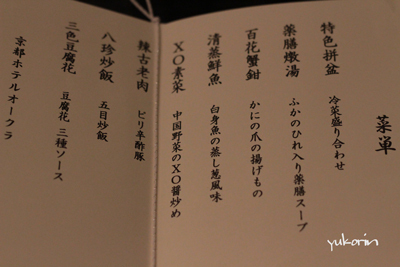 菜単
特色拼盆 冷菜盛り合わせ
薬膳燉湯 ふかのひれ入り薬膳スープ
百花蟹鉗 かにの爪の揚げもの
清蒸鮮魚 白身魚の蒸し葱風味
XO素菜 中国野菜のXO醬炒め
辣古老肉 ピリ辛酢豚
八珍炒飯 五目炒飯
三色豆腐花 豆腐花 三種ソース
京都ホテルオークラ
yukorin